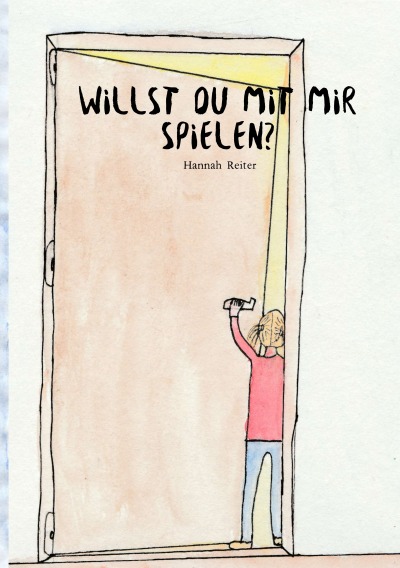 WiLLST DU MiT MiR
SPiELEN?
Hannah Reiter